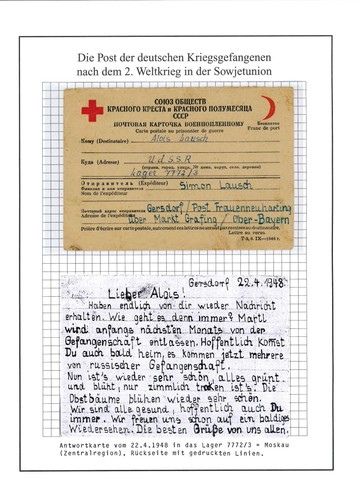 Die Post der deutschen Kriegsgefangenen
nach dem 2. Weltkrieg in der Sowjetunion
СОЮЗ ОБЩЕСТВ
КРАСНОГО КРЕСТА и КРАСНОГО ПОЛУМЕСЯЦА
СССР
ПОЧТОВАЯ КАРТОЧКА ВОЕННОПЛЕННОМУ
Carte postale au prisonnier de guerre
Бесплатно
Franc de port
Кому (Destinataire) Alois Lausch
Куда (Adresse) UdSSR
(страна, город, улица, № дома, округ, село, деревня)
Lager 7772/3
Отправитель (Expéditeur) Simon Lausch
Фамилия и имя отправителя
Gersdorf / Post Frauenneuharting
Почтовый адрес отправителя
Adresse de l'expéditeur
über Markt Grafing / Ober-Bayern
Prière d'écrire sur carte postale, autrement ces
Gersdorf 22.4.1948.
Lieber Alois!
Haben endlich von dir wieder Nachricht
erhalten. Wie geht es denn immer? Martl
wird anfangs nächsten Monats von der
Gefangenschaft entlassen. Hoffentlich kommst
Du auch bald heim, es kommen jetzt mehrere
von russischer Gefangenschaft.
Nun ist's wieder sehr schön, alles grünt
und blüht, nur zimmlich troken ist's. Die
Obstbäume blühen wieder sehr schön.
Wir sind alle gesund, hoffentlich auch Du
immer. Wir freuen uns schon auf ein baldiges
Wiedersehen. Die besten Grüße von uns allen.
Antwortkarte vom 22.4.1948 in das Lager 7772/3 = Moskau
(Zentralregion), Rückseite mit gedruckten Linien.